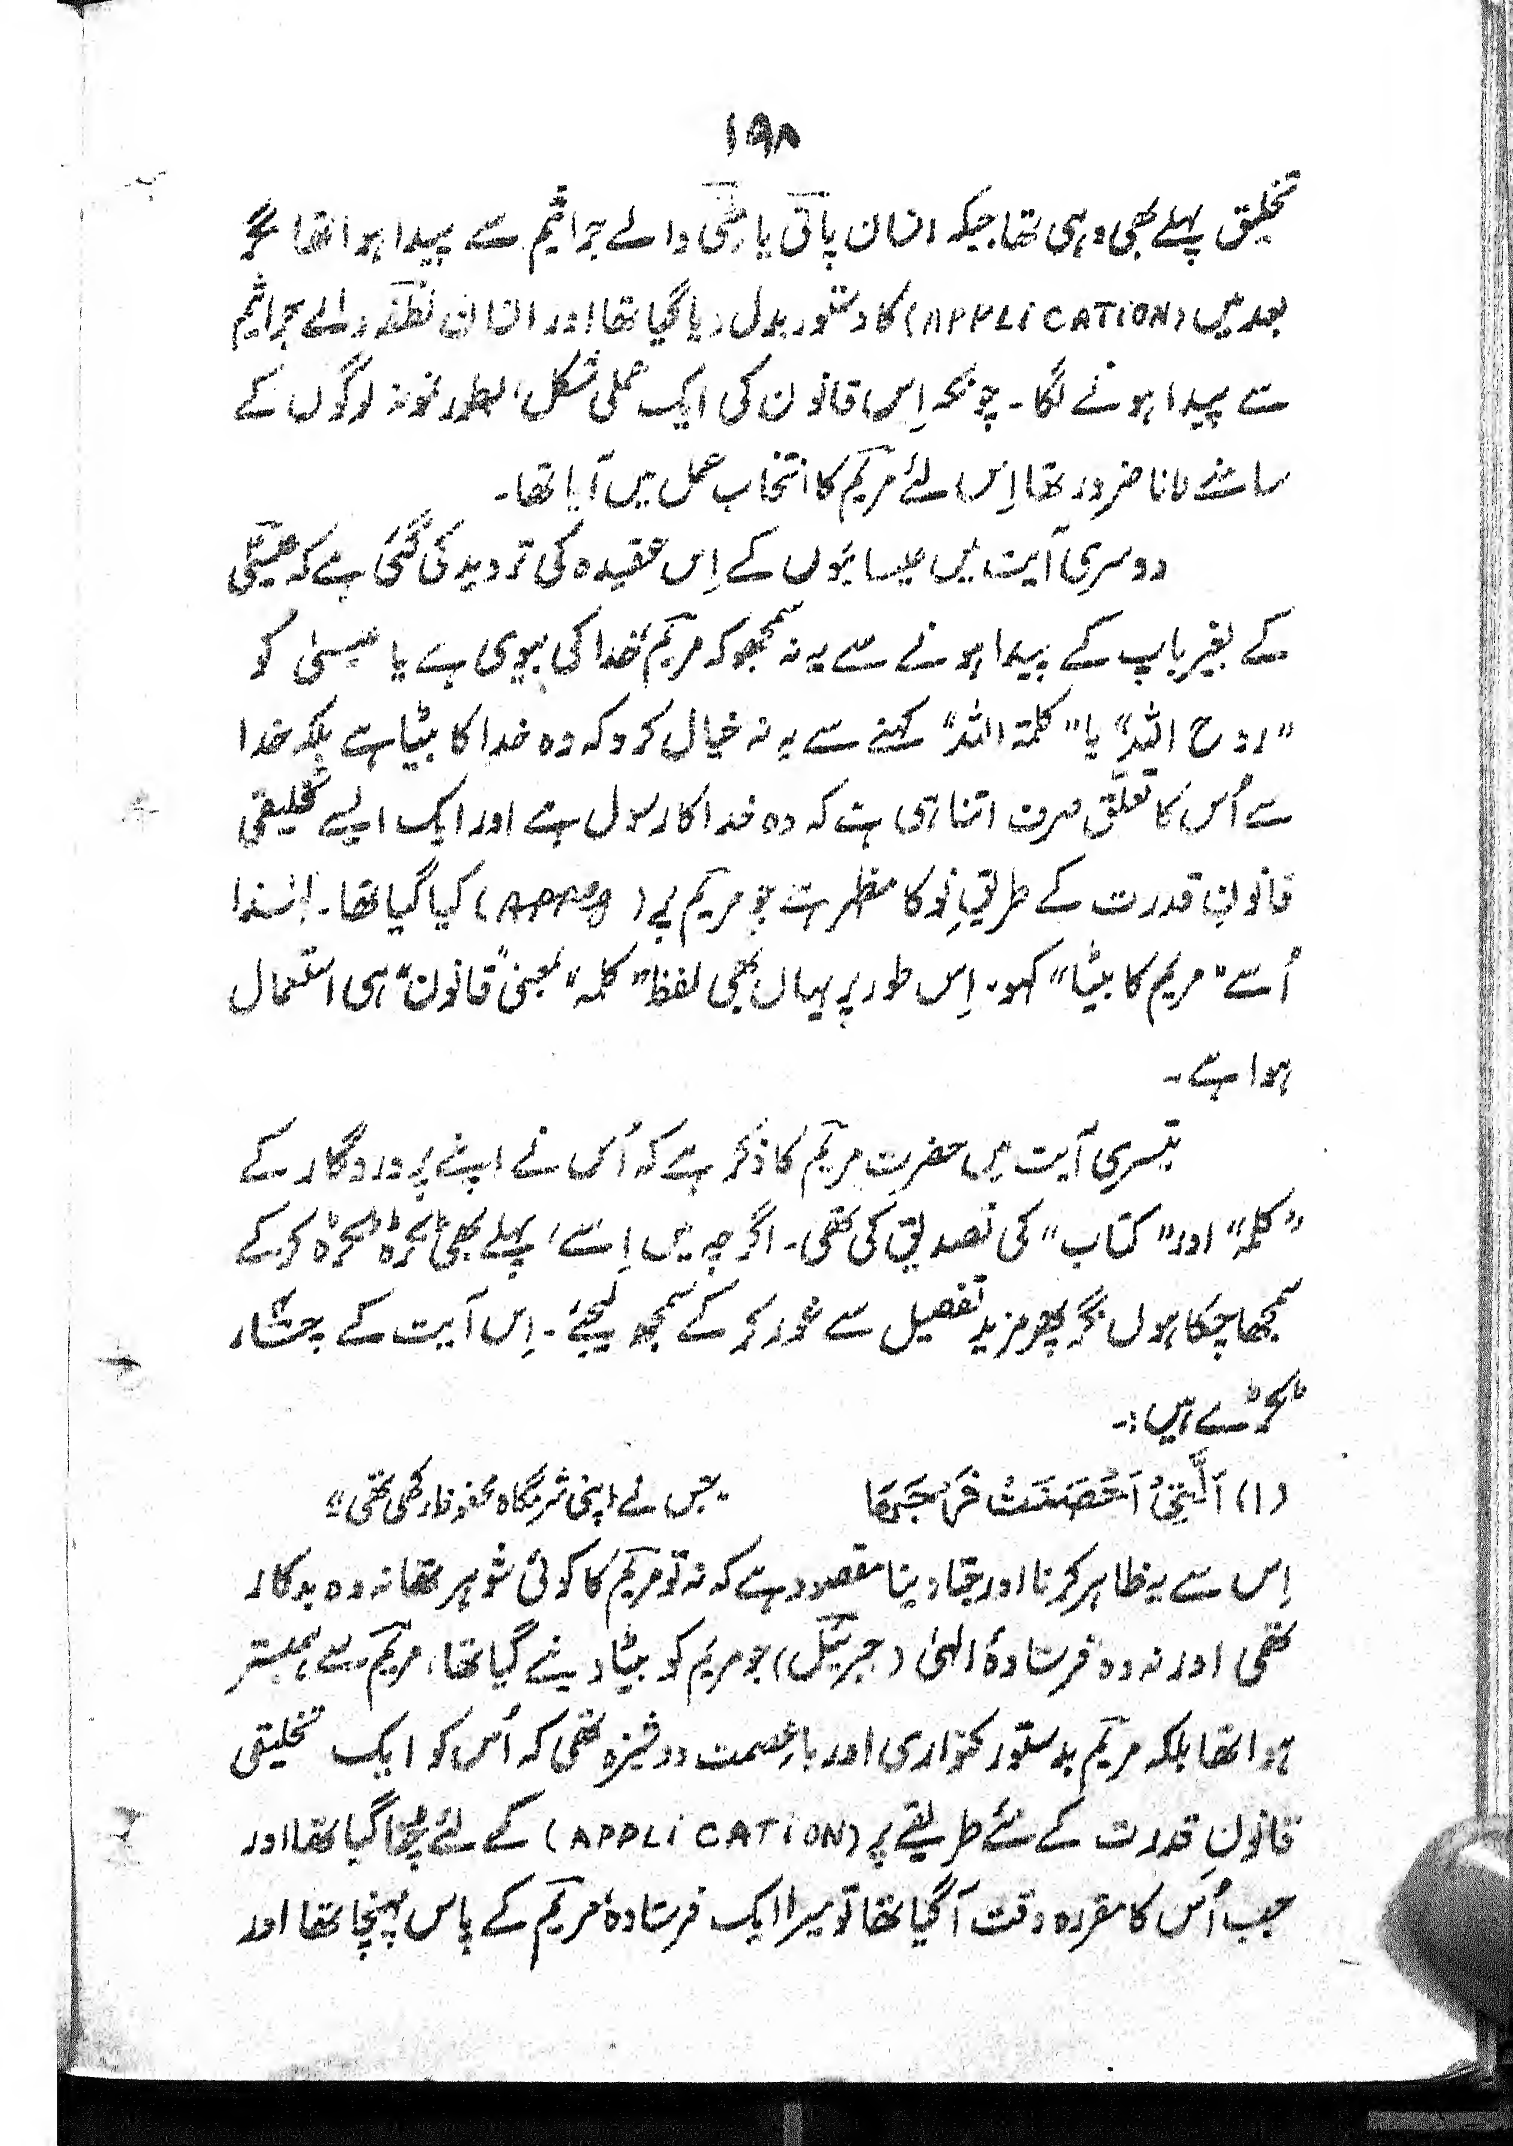 ۱۹۸
تخلیق پہلے بھی وہی تھا جبکہ انسان پانی یا مٹی والے جراثیم سے پیدا ہوا تھا مگر
بعد میں (APPLiCATiON) کا دستور بدل دیا گیا تھا اور انسان نطفہ والے جراثیم
سے پیدا ہونے لگا۔ چونکہ اِس قانون کی ایک عملی شکل، بطور نمونہ لوگوں کے
سامنے لانا ضرور تھا اِس لئے مریم کا انتخاب عمل میں آیا تھا۔
دوسری آیت میں عیسائیوں کے اِس عقیدہ کی تردید کی گئی ہے کہ عیسٰی
کے بغیر باپ کے پیدا ہونے سے یہ نہ سمجھو کہ مریم خدا کی بیوی ہے یا عیسیٰ کو
”روح اللہ“ یا ”کلمۃ اللہ“ کہنے سے یہ نہ خیال کرو کہ وہ خدا کا بیٹا ہے بلکہ خدا
سے اُس کا تعلّق صرف اتنا ہی ہے کہ وہ خدا کا رسول ہے اور ایک ایسے تخلیقی
قانونِ قدرت کے طریقِ نو کا مظہر ہے جو مریم پے ( ) کیا گیا تھا۔ لہٰذا
اُسے ”مریم کا بیٹا“ کہو۔ اِس طور پر یہاں بھی لفظ ”کلمہ“ بمعنی ”قانون“ ہی استعمال
ہوا ہے۔
تیسری آیت میں حضرت مریم کا ذکر ہے کہ اُس نے اپنے پروردگار کے
”کلمہ“ اور ”کتاب“ کی تصدیق کی تھی۔ اگرچہ میں اِسے، پہلے بھی ٹکڑہ ٹکڑہ کر کے
سمجھا چکا ہوں مگر پھر مزید تفصیل سے غور کر کے سمجھ لیجئے۔ اِس آیت کے چار
ٹکڑے ہیں:۔
(۱) اَلَّتِیْ اَحْصَنَتْ فَرْجَہَا ”جس نے اپنی شرمگاہ محفوظ رکھی تھی“
اِس سے یہ ظاہر کرنا اور جتا دینا مقصود ہے کہ نہ تو مریم کا کوئی شوہر تھا نہ وہ بدکار
تھی اور نہ وہ فرستادۂ الٰہی (جبرئیل) جو مریم کو بیٹا دینے گیا تھا، مریم سے ہمبستر
ہوا تھا بلکہ مریم بدستور کنواری اور با عصمت دوشیزہ تھی کہ اُس کو ایک تخلیقی
قانونِ قدرت کے نئے طریقے پر (APPLiCATiON) کے لئے چُنا گیا تھا اور
جب اُس کا مقررہ وقت آ گیا تھا تو میرا ایک فرستادہ مریم کے پاس پہنچا تھا اور